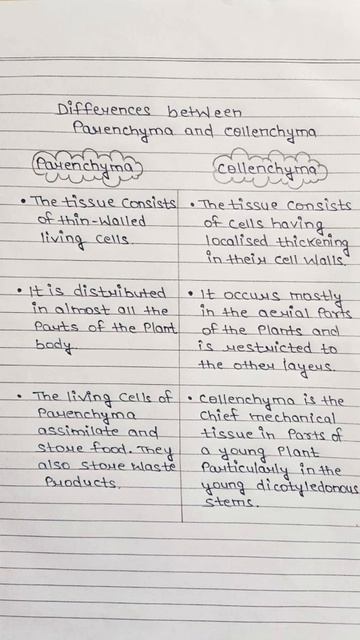 Differences between
Parenchyma and collenchyma
Parenchyma
• The tissue consists
of thin-walled
living cells.
• It is distributed
in almost all the
Parts of the Plant
body.
• The living cells of
Parenchyma
assimilate and
store food. They
also store waste
Products.
collenchyma
• The tissue consists
of cells having
localised thickening
in their cell walls.
• It occurs mostly
in the aerial Parts
of the Plants and
is restricted to
the other layers.
• collenchyma is the
chief mechanical
tissue in Parts of
a young Plant
Particularly in the
young dicotyledonous
stems.